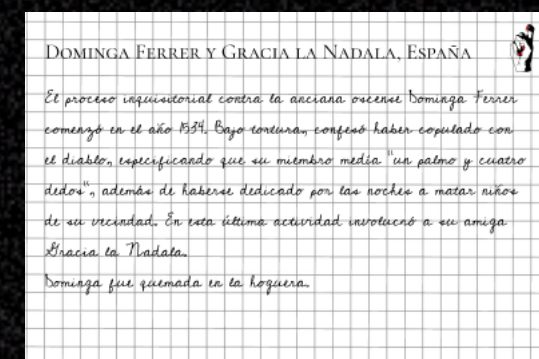 Dominga Ferrer y Gracia la Nadala, España
El proceso inquisitorial contra la anciana oscense Dominga Ferrer
comenzó en el año 1534. Bajo tortura, confesó haber copulado con
el diablo, especificando que su miembro medía "un palmo y cuatro
dedos", además de haberse dedicado por las noches a matar niños
de su vecindad. En esta última actividad involucró a su amiga
Gracia la Nadala.
Dominga fue quemada en la hoguera.